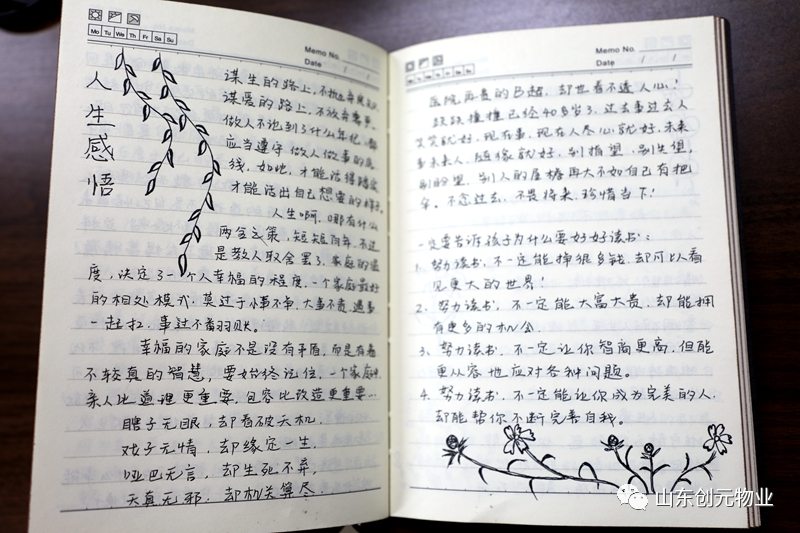 Mo Tu We Th Fr Sa Su
Memo No.
Date / /
人生感悟
谋生的路上,不抛弃良知,
谋爱的路上,不放弃尊严,
做人不论到了什么年纪,都
应当遵守做人做事的底
线,如此,才能活得踏实,
才能活出自己想要的样子。
人生啊,哪有什么
两全之策,短短百年,不过
是教人取舍罢了,家庭的温
度,决定了一个人幸福的程度,一个家庭最好
的相处模式,莫过于小事不争,大事不责,遇事
一起扛,事过不翻旧账。
幸福的家庭不是没有矛盾,而是有着
不较真的智慧,要始终记住,一个家庭中,
亲人比道理更重要,包容比改造更重要…
瞎子无眼,却看破天机,
戏子无情,却缘定一生,
哑巴无言,却生死不弃,
天真无邪,却机关算尽。
Memo No.
Date / /
医院再贵的B超,却也看不透人心!
跌跌撞撞已经40多岁了,过去事过去人
笑笑就好,现在事,现在人尽心就好,未来
事未来人,随缘就好,别指望,别失望,
别盼望,别人的屋檐再大不如自己有把
伞。不念过去,不畏将来,珍惜当下!
一定要告诉孩子为什么要好好读书:
1、努力读书,不一定能挣很多钱,却可以看
见更大的世界!
2、努力读书,不一定能大富大贵,却能拥
有更多的机会。
3、努力读书,不一定让你智商更高,但能
更从容地应对各种问题。
4、努力读书,不一定能让你成为完美的人,
却能帮你不断完善自我。
山东创元物业